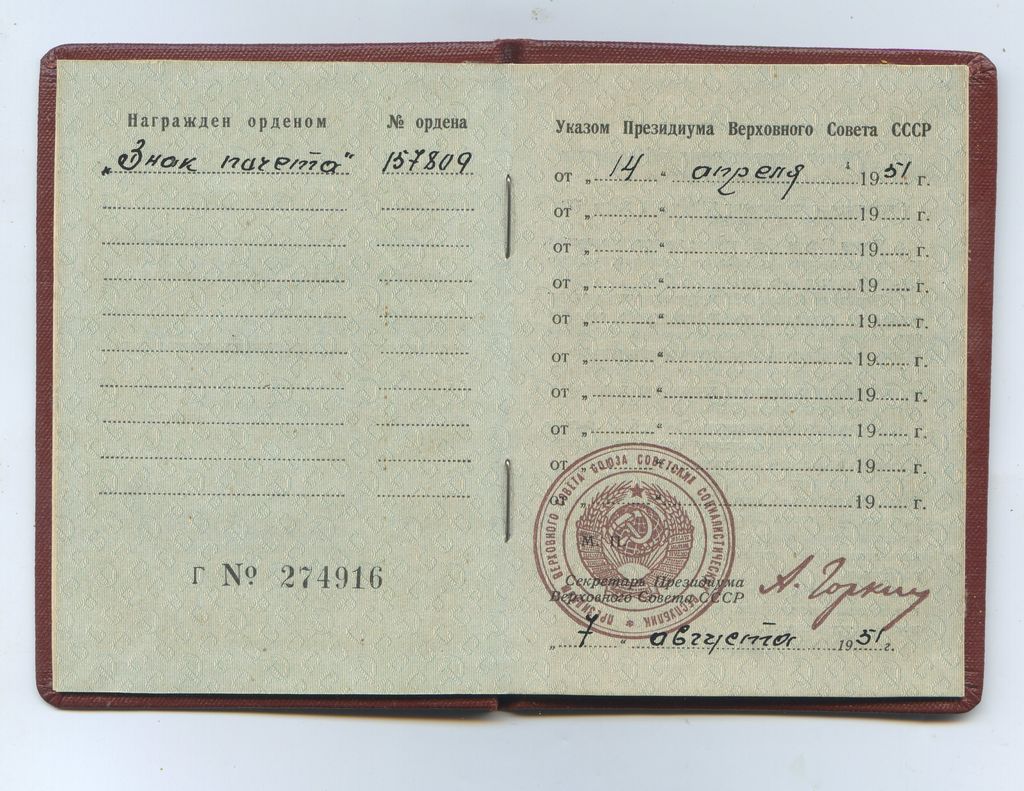 Награжден орденом
№ ордена
„Знак почета“ 157809
Г № 274916
Указом Президиума Верховного Совета СССР
от „ 14 “ апреля 1951 г.
от „ “ 19 г.
от „ “ 19 г.
от „ “ 19 г.
от „ “ 19 г.
от „ “ 19 г.
от „ “ 19 г.
от „ “ 19 г.
от „ “ 19 г.
от „ “ 19 г.
ПРЕЗИДИУМ ВЕРХОВНОГО СОВЕТА СОЮЗА СОВЕТСКИХ СОЦИАЛИСТИЧЕСКИХ РЕСПУБЛИК
М. П.
Секретарь Президиума
Верховного Совета СССР
А. Горкин
„ 7 “ августа 1951 г.